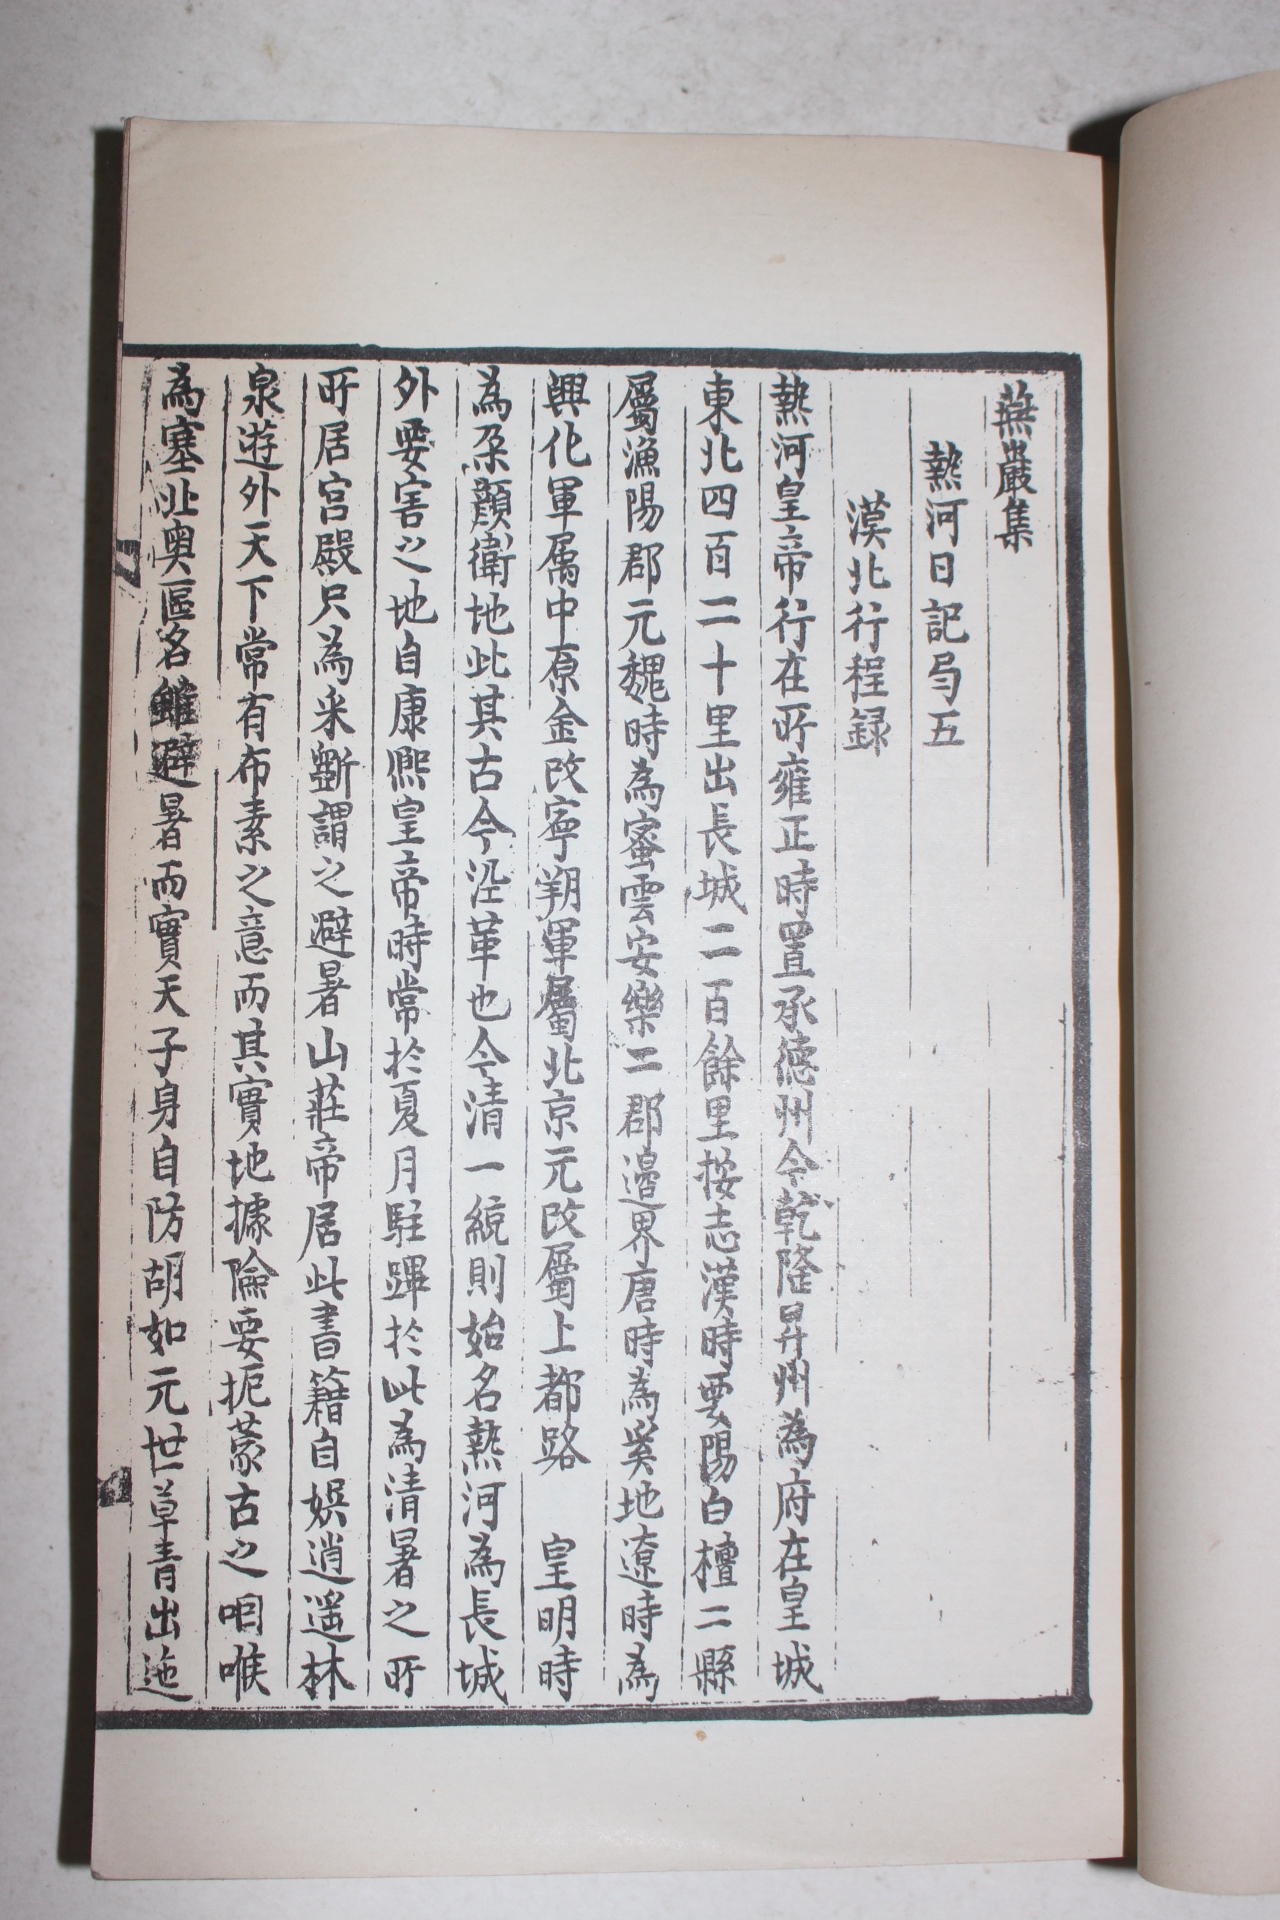 燕巖集
熱河日記卷五
漠北行程録
熱河皇帝行在所雍正時置承德州今乾隆昇州為府在皇城
東北四百二十里出長城二百餘里按志漢時要陽白檀二縣
屬漁陽郡元魏時為密雲安樂二郡邊界唐時為奚地遼時為
興化軍属中京金改寧朔軍屬北京元改屬上都路　皇明時
為朶顏衛地此其古今沿革也今清一統則始名熱河為長城
外要害之地自康熙皇帝時常於夏月駐蹕於此為清暑之所
所居宮殿只為采斷謂之避暑山莊帝居此書籍自娛逍遥林
泉遊外天下常有布素之意而其實地據險要扼蒙古之咽喉
為塞北奥區名雖避暑而實天子身自防胡如元世草青出迤